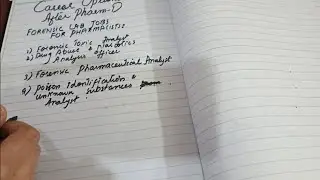 Career Options
After Pharm-D
FORENSIC LAB JOBS
FOR PHARMACISTS
1) Forensic Toxic Analyst
2) Drug Abuse & Narcotics
Analysis officer
3) Forensic Pharmaceutical Analyst
4) Poison Identification &
unknown substances
Analyst